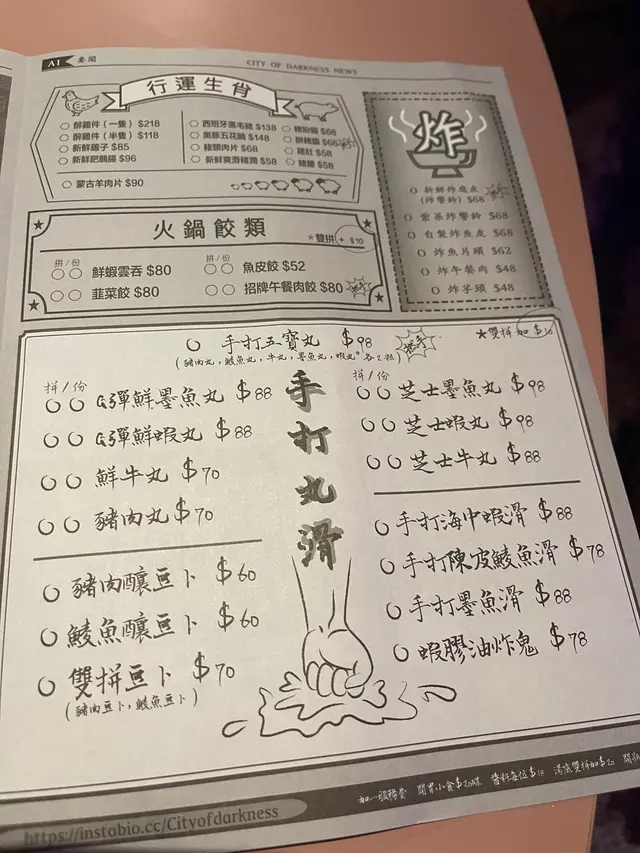 A1 要聞
CITY OF DARKNESS NEWS
行運生肖
醉雞件（一隻）$218
醉雞件（半隻）$118
新鮮雞子 $85
新鮮肥鵝腸 $96
西班牙黑毛豬 $138
黑豚五花腩 $148
豬頸肉片 $68
新鮮爽滑豬潤 $58
豬粉腸 $68
豬肚 $58
豬腰 $58
蒙古羊肉片 $90
炸
新鮮炸腐皮
（炸響鈴）$68
紫菜炸響鈴 $68
自製炸魚皮 $68
炸魚片頭 $62
炸午餐肉 $48
炸芋頭 $48
火鍋餃類
*雙拼 + $10
拼/份
鮮蝦雲吞 $80
韮菜餃 $80
拼/份
魚皮餃 $52
招牌午餐肉餃 $80
手打五寶丸 $98
(豬肉丸，鯪魚丸，牛丸，墨魚丸，蝦丸*各2粒)
*雙拼加$10
手打丸滑
拼/份
G彈鮮墨魚丸 $88
G彈鮮蝦丸 $88
鮮牛丸 $70
豬肉丸 $70
豬肉釀豆卜 $60
鯪魚釀豆卜 $60
雙拼豆卜 $70
(豬肉豆卜，鯪魚豆卜)
拼/份
芝士墨魚丸 $98
芝士蝦丸 $98
芝士牛丸 $88
手打海中蝦滑 $88
手打陳皮鯪魚滑 $78
手打墨魚滑 $88
蝦膠油炸鬼 $78
加一服務費 開胃小食$20 醬料每位$10 湯底雙拼加$20
https://instabio.cc/Cityofdarkness